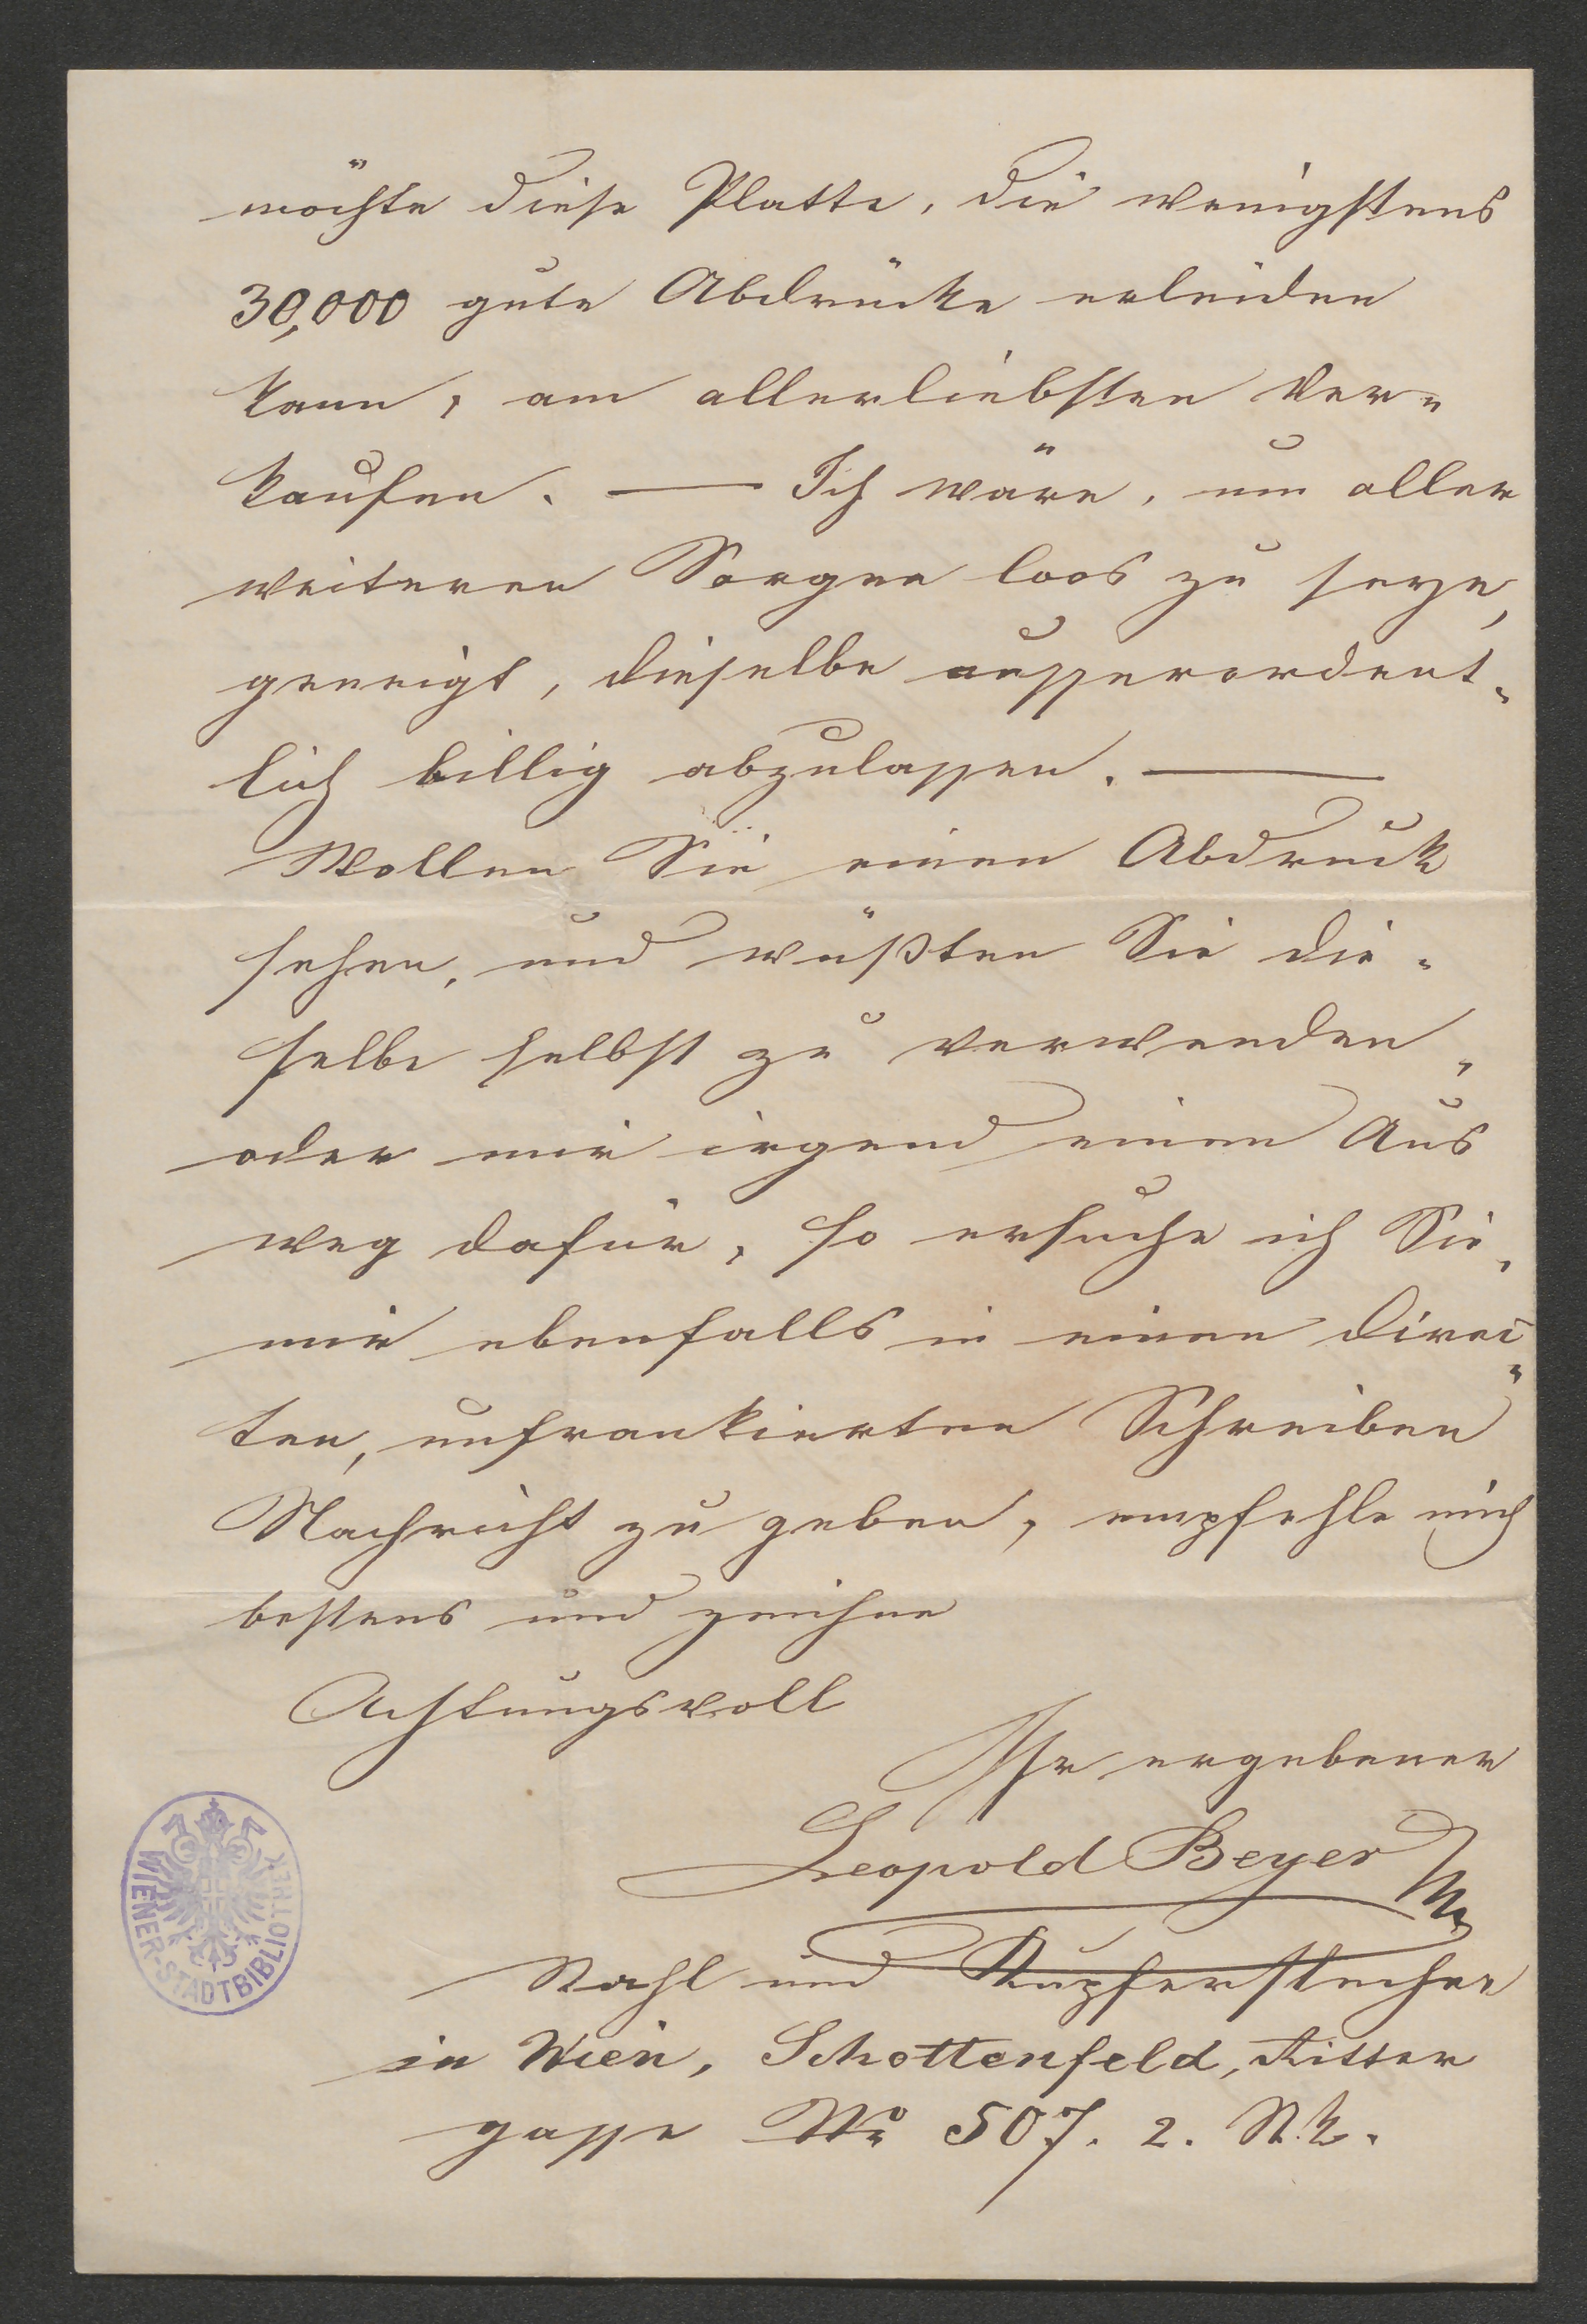 möchte diese Platte, die wenigstens
30,000 gute Abdrücke erleiden
kann, am allerliebsten ver=
kaufen. — Ich wäre, um aller
weiteren Sorgen loos zu seyn,
geneigt, dieselbe ausserordent=
lich billig abzulassen. —
Wollen Sie einen Abdruck
sehen, und wüßten Sie die=
selbe selbst zu verwenden,
oder mir irgend einen Aus
weg dafür, so ersuche ich Sie,
mir ebenfalls in einen direc=
ten, unfrankierten Schreiben
Nachricht zu geben, empfehle mich
bestens und zeichne
Achtungsvoll
Ihr ergebener
Leopold Beyer
Stahl und Kupferstecher
in Wien, Schottenfeld, Ritter
gasse No 507. 2. St.
WIENER-STADTBIBLIOTHEK